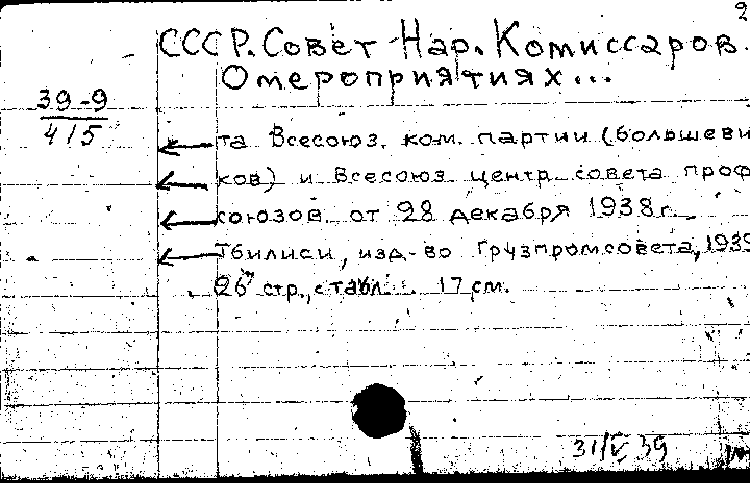 2
СССР. Совет Нар. Комиссаров.
О мероприятиях...
39-9
415
та Всесоюз. ком. партии (большеви
ков) и Всесоюз. центр. совета проф
союзов от 28 декабря 1938 г.
Тбилиси, изд-во Грузпромсовета, 1939
26 стр., с табл. 17 см.
31/V 39